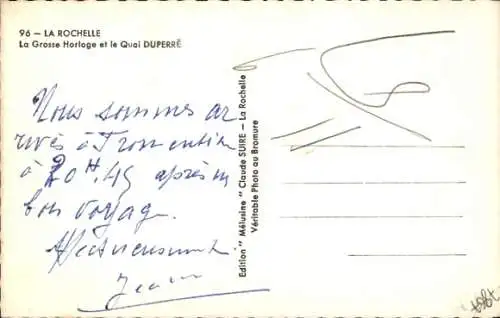 96 — LA ROCHELLE
La Grosse Horloge et le Quai DUPERRÉ
Nous sommes ar
rivés à Fromentine
à 20H.45 après un
bon voyage.
Affectueusement
Jean
Edition " Mélusine " Claude SUIRE — La Rochelle
Véritable Photo au Bromure